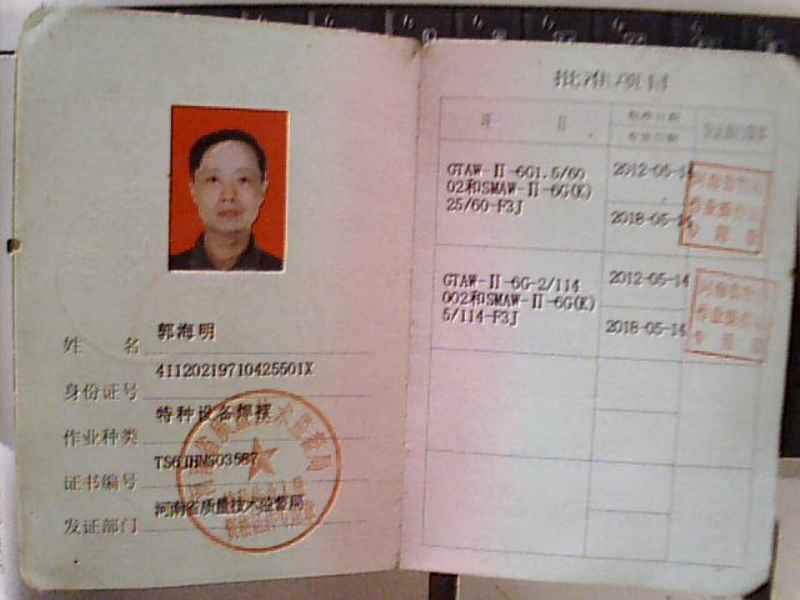 郭海明
姓 名
41120219710425501X
身份证号
特种设备焊接
作业种类
证书编号
河南省质量技术监督局
发证部门
批准项目
项 目
GTAW-Ⅱ-6G1.5/60
02和SMAW-Ⅱ-6G(K)
25/60-F3J
2012-05-14
2018-05-14
GTAW-Ⅱ-6G-2/114
002和SMAW-Ⅱ-6G(K)
5/114-F3J
2012-05-14
2018-05-14